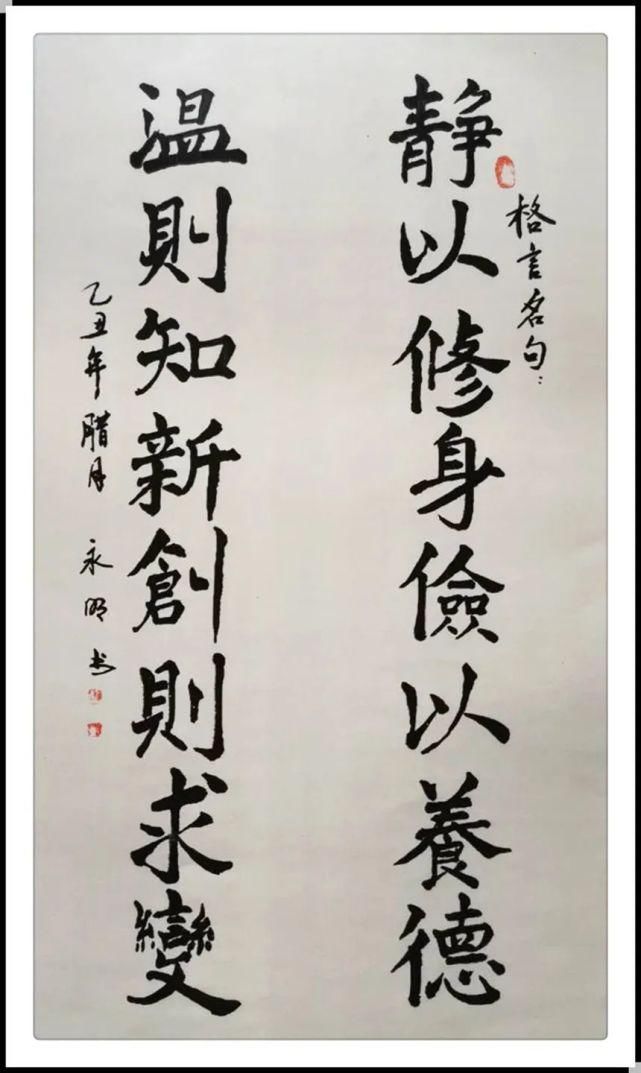 格言名句：
静以修身儉以養德
温則知新創則求變
乙丑年腊月 永明书